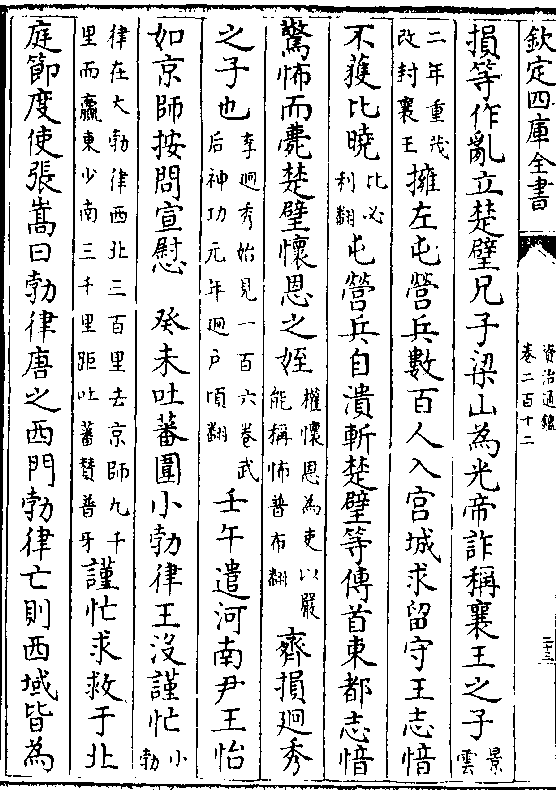 欽定四庫全書
資治通鑑
卷二百十二
二十三
損等作亂立楚璧兄子梁山為光帝詐稱襄王之子景雲
二年重茂改封襄王擁左屯營兵數百人入宮城求留守王志愔
不獲比曉比必利翻屯營兵自潰斬楚璧等傳首東都志愔
驚怖而薨楚璧懷恩之姪權懷恩為吏以嚴能稱怖普布翻齊損迥秀
之子也李迥秀始見一百六卷武后神功元年迥戶頃翻壬午遣河南尹王怡
如京師按問宣慰 癸未吐蕃圍小勃律王沒謹忙小勃
律在大勃律西北三百里去京師九千里而贏東少南三千里距吐蕃贊普牙謹忙求救于北
庭節度使張嵩曰勃律唐之西門勃律亡則西域皆為